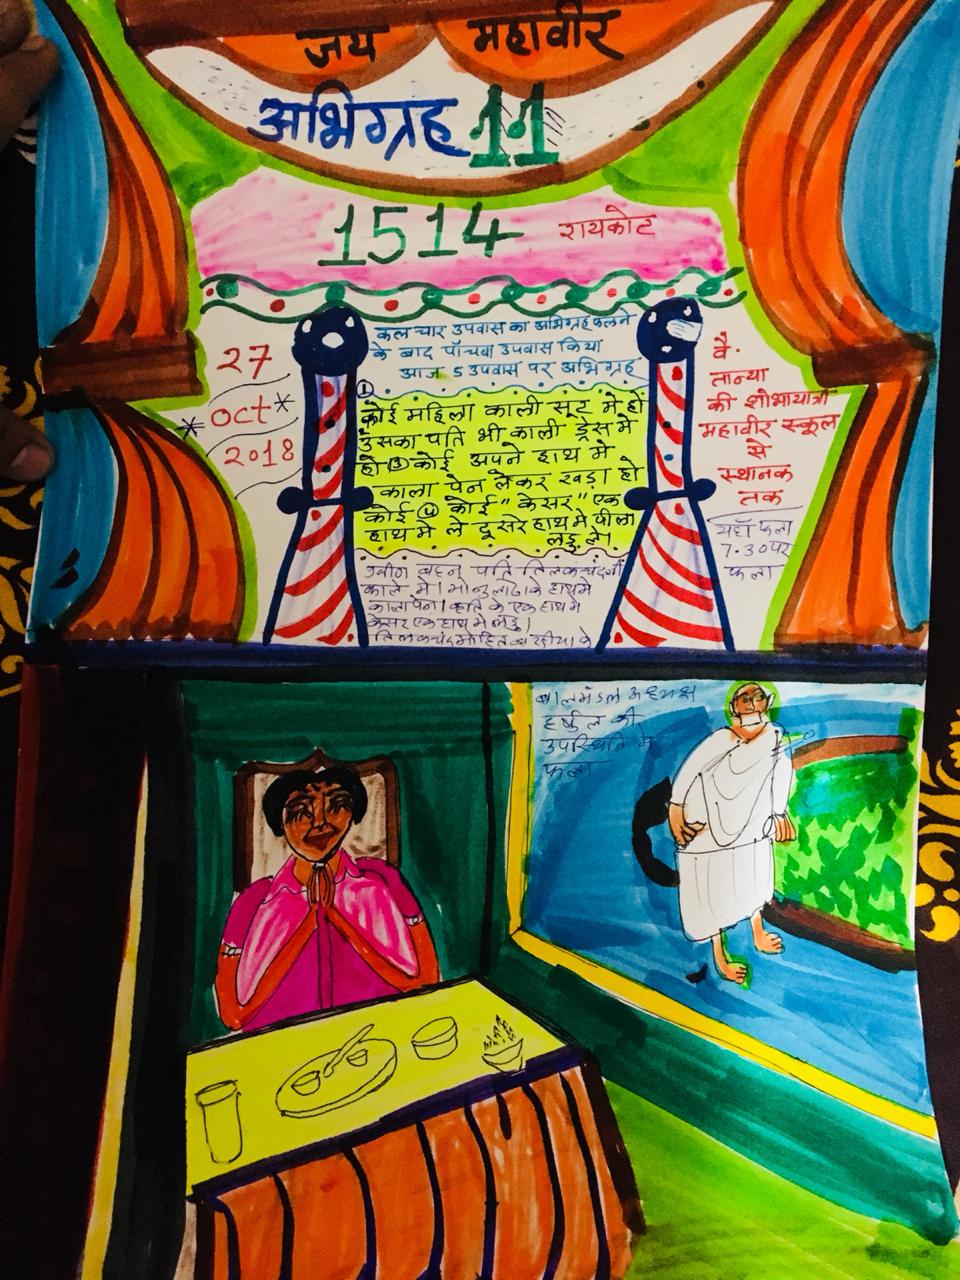 जय महावीर
अभिग्रह 11
1514 रायकोट
27
oct
2018
कल चार उपवास का अभिग्रह फलने
के बाद पाँचवा उपवास किया
आज 5 उपवास पर अभिग्रह
① कोई महिला काली सूट मे हो
उसका पति भी काली ड्रेस मे
हो ③ कोई अपने हाथ मे
काला पेन लेकर खड़ा हो
कोई ④ कोई "केसर" एक
हाथ मे ले दूसरे हाथ मे पीला
लड्डू ले।
बहन पति तिलकचंदजी
काले मे। के हाथ मे
काला पेन। के एक हाथ मे
केसर एक हाथ मे लड्डू।
वै.
तान्या
की शोभायात्रा
महावीर स्कूल
से
स्थानक
तक
यहाँ फला
7.30 पर
फला
बालमंडल अध्यक्ष
की
उपस्थिति मे
फला